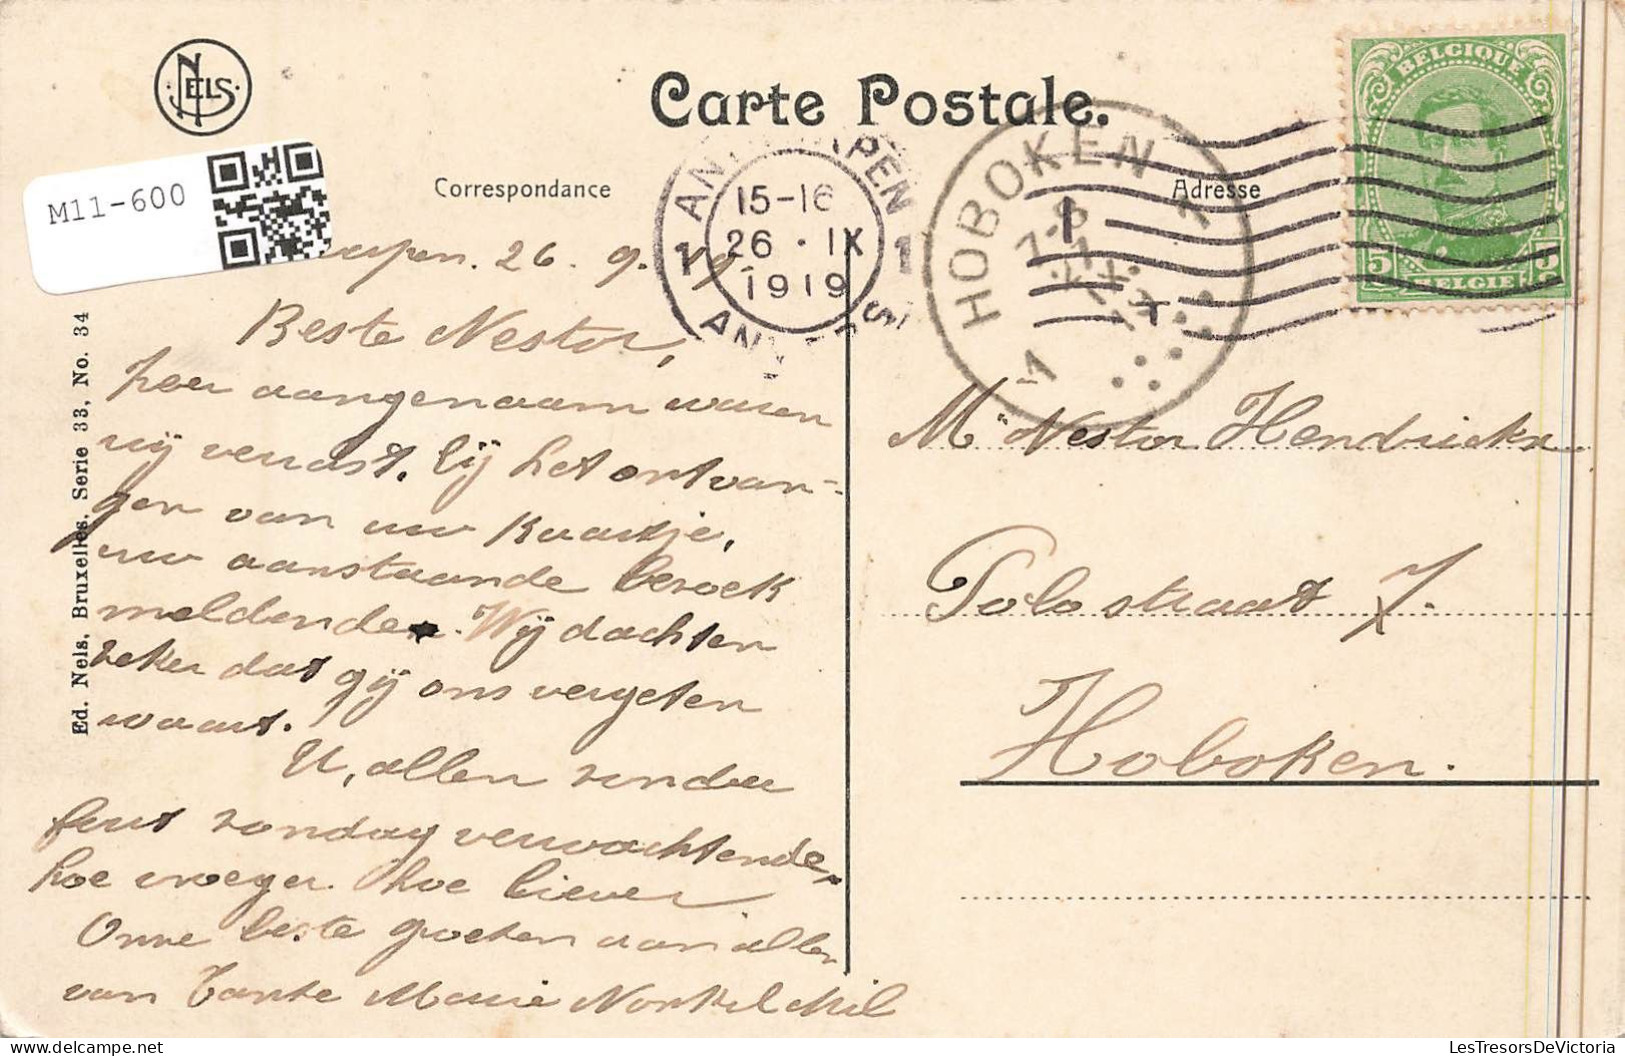 NELS
Carte Postale.
BELGIQUE
5 5
BELGIË
M11-600
Correspondance
Adresse
ANTWERPEN
1 15-16 1
26 · IX
1919
HOBOKEN
1 1
7-8
26. 9. 19.
Beste Nestor,
hoe aangenaam waren
wij verrast. bij het ontvan-
gen van uw kaartje,
uw aanstaande bezoek
meldende. Wij dachten
zeker dat gij ons vergeten
waart.
U, allen zonder
fout zondag verwachtende,
hoe vroeger hoe liever
Onze beste groeten aan allen
van Tante Marie Nonkel Mil
Mr Nestor Hendrickx
Polostraat 7.
Hoboken.
Ed. Nels, Bruxelles, Serie 33, No. 34
LesTresorsDeVictoria